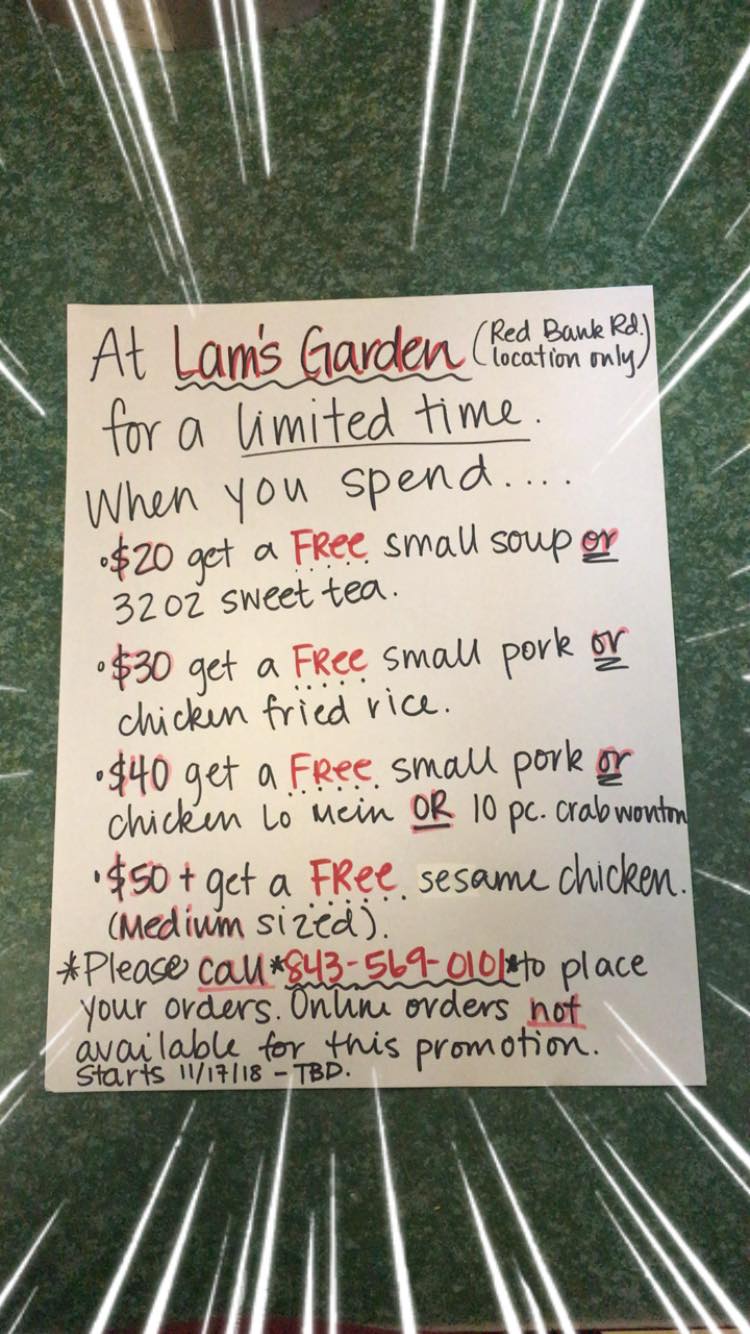 At Lam's Garden (Red Bank Rd.
location only)
for a limited time.
When you spend....
•$20 get a FRee small soup or
32oz sweet tea.
•$30 get a FRee small pork or
chicken fried rice.
•$40 get a FRee small pork or
chicken Lo Mein OR 10 pc. crab wonton
•$50+ get a FRee sesame chicken.
(Medium sized).
*Please call*843-569-0101*to place
your orders. Online orders not
available for this promotion.
Starts 11/17/18 - TBD.